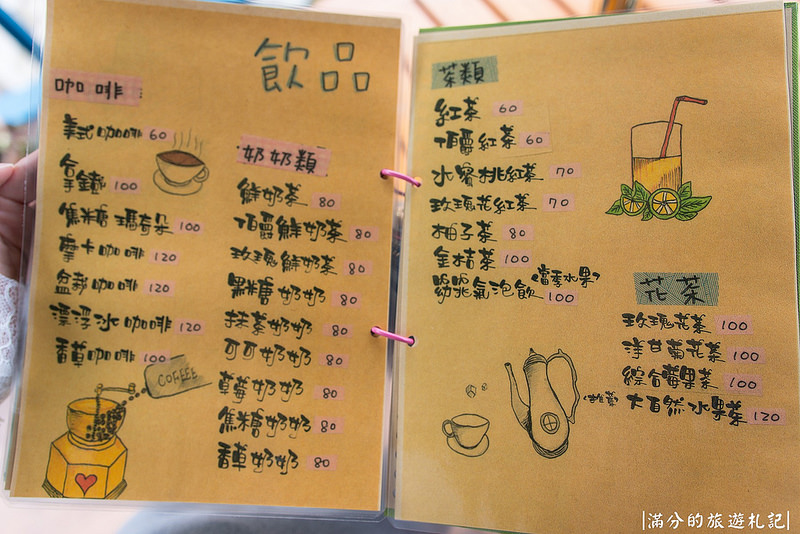 飲品
咖啡
美式咖啡 60
拿鐵 100
焦糖瑪奇朵 100
摩卡咖啡 120
盆栽咖啡 120
漂浮冰咖啡 120
香草咖啡 100
COFFEE
奶奶類
鮮奶茶 80
頂級鮮奶茶 80
玫瑰鮮奶茶 80
黑糖奶奶 80
抹茶奶奶 80
可可奶奶 80
草莓奶奶 80
焦糖奶奶 80
香草奶奶 80
茶類
紅茶 60
頂級紅茶 60
水蜜桃紅茶 70
玫瑰花紅茶 70
柚子茶 80
金桔茶 100
氣泡飲 (當季水果) 100
花茶
玫瑰花茶 100
洋甘菊花茶 100
綜合莓果茶 100
(推薦) 大自然水果茶 120
|滿分的旅遊札記|